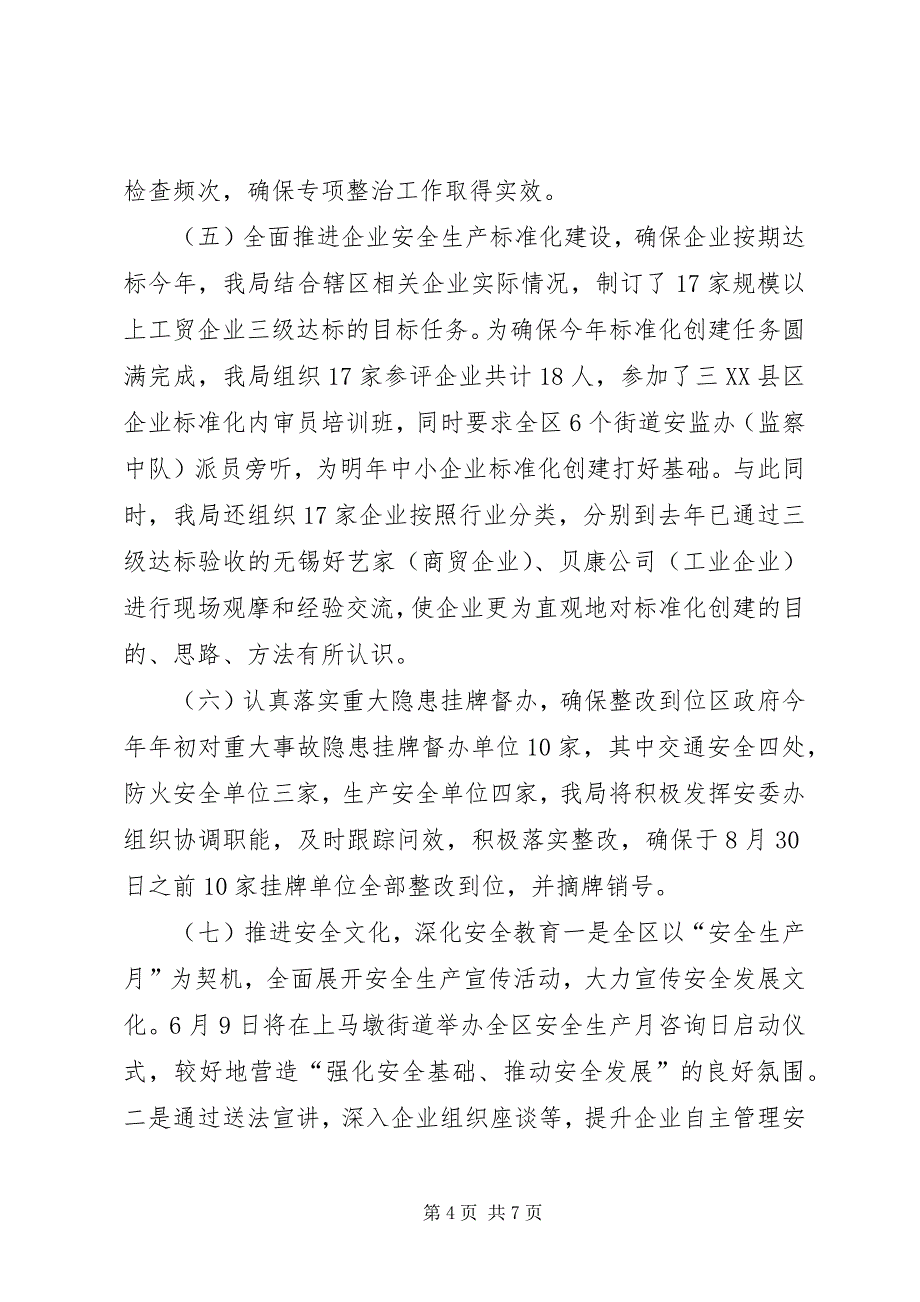 检查频次，确保专项整治工作取得实效。
（五）全面推进企业安全生产标准化建设，确保企业按期达
标今年，我局结合辖区相关企业实际情况，制订了 17 家规模以
上工贸企业三级达标的目标任务。为确保今年标准化创建任务圆
满完成，我局组织 17 家参评企业共计 18 人，参加了三 XX 县区
企业标准化内审员培训班，同时要求全区 6 个街道安监办（监察
中队）派员旁听，为明年中小企业标准化创建打好基础。与此同
时，我局还组织 17 家企业按照行业分类，分别到去年已通过三
级达标验收的无锡好艺家（商贸企业）、贝康公司（工业企业）
进行现场观摩和经验交流，使企业更为直观地对标准化创建的目
的、思路、方法有所认识。
（六）认真落实重大隐患挂牌督办，确保整改到位区政府今
年年初对重大事故隐患挂牌督办单位 10 家，其中交通安全四处，
防火安全单位三家，生产安全单位四家，我局将积极发挥安委办
组织协调职能，及时跟踪问效，积极落实整改，确保于 8 月 30
日之前 10 家挂牌单位全部整改到位，并摘牌销号。
（七）推进安全文化，深化安全教育一是全区以“安全生产
月”为契机，全面展开安全生产宣传活动，大力宣传安全发展文
化。6 月 9 日将在上马墩街道举办全区安全生产月咨询日启动仪
式，较好地营造“强化安全基础、推动安全发展”的良好氛围。
二是通过送法宣讲，深入企业组织座谈等，提升企业自主管理安
第 4 页 共 7 页